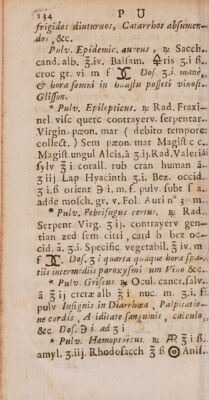 134 P U
frigidos diuturnos, Catarrhos absumen-
dos, &c.
Pulv. Epidemic. aureus, ℞ Sacch.
cand. alb. ℥.iv. Balsam. ris ʒ.i ß.
croc gr. vi m f Dos. ʒ.i. mane,
& hora somni in haustu posseti vinosi.
Glisson.
* Pulv. Epilepticus. ℞ Rad. Fraxi-
nel. visc querc contrayerv. serpentar.
Virgin. pæon. mar ( debito tempore
collect.) Sem pæon. mar Magist c c.
Magist. ungul Alcis, ā ʒ ij. Rad. Valeria
sylv ℥ i corall. rub cran human ā
ʒ iij Lap Hyacinth ʒ.i. Bez. occid.
ʒ i.ß orient ℈ i. m. f. pulv. subt s a.
adde mosch. gr. v. Fol. Auri n° 3. m.
* Pulv. Febrifugus certus. ℞ Rad.
Serpent. Virg. ʒ ij. contrayerv gen-
tian zed sem citri, cand b bez oc-
cid. ā. ʒ.i. Specific. vegetabil. ℥ iv. m
f Dos. ʒ i quarta quaque hora spa-
tiis intermediis paroxysmi um Vino &c.
* Pulv. Griseus ℞ Ocul. cancr. salv.
ā ℥ ij cretæ alb ℥ i nuc. m. ʒ.i. f.
pulv Insignis in Diarrhœa, Palpitatio-
ne cordis, Aciditate sanguinis, calculo,
&c. Dos. ℈ i. ad ʒ i
* Pulv. Hæmoptoicus. ℞ ʒ i ß.
amyl. ʒ.iij. Rhodosacch ℥ ß Anis.